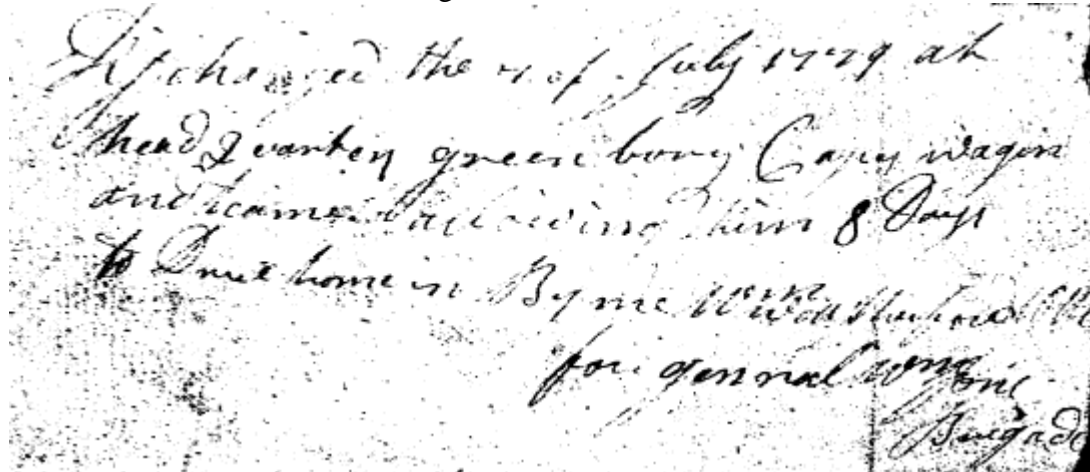 Discharged the 7 of July 1779 at
head Quarters green bory Capy wagin
and teame allowing him 8 Days
to Drive home in By me
for genral
Brigade